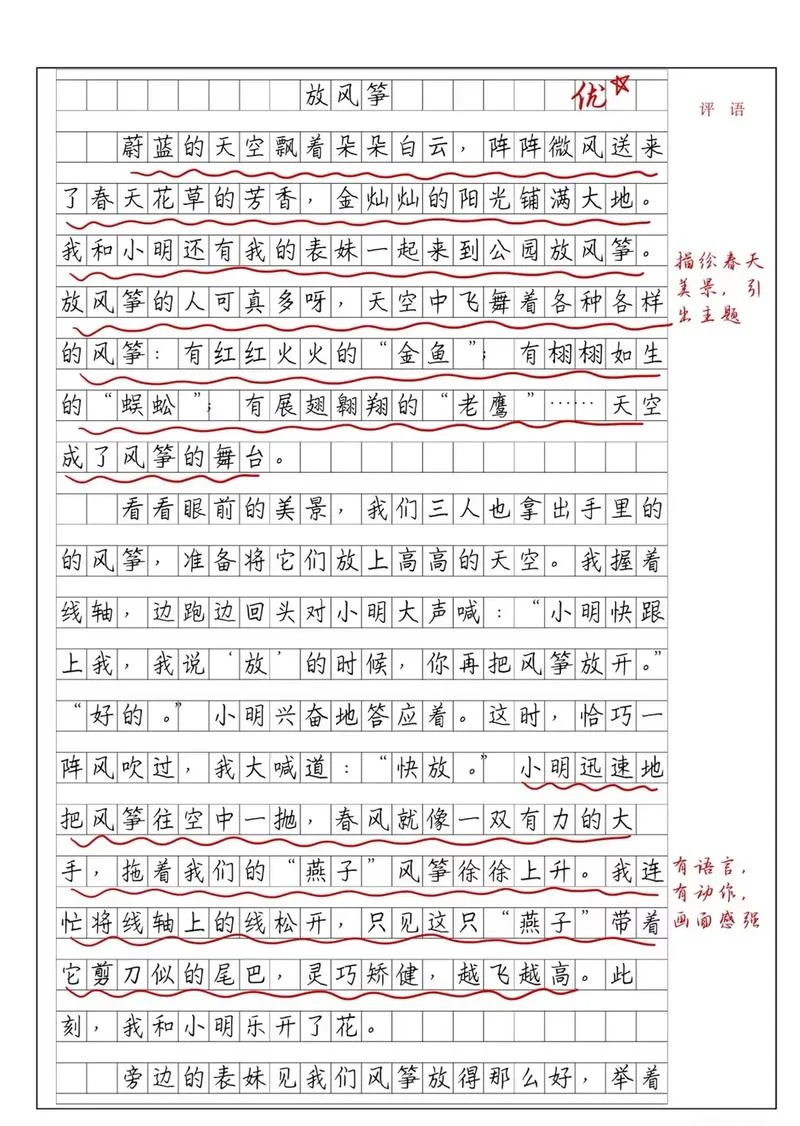 放风筝
优
评语
蔚蓝的天空飘着朵朵白云，阵阵微风送来
了春天花草的芳香，金灿灿的阳光铺满大地。
我和小明还有我的表妹一起来到公园放风筝。
放风筝的人可真多呀，天空中飞舞着各种各样
的风筝：有红红火火的“金鱼”；有栩栩如生
的“蜈蚣”；有展翅翱翔的“老鹰”……天空
成了风筝的舞台。
描绘春天
美景，引
出主题
看看眼前的美景，我们三人也拿出手里的
的风筝，准备将它们放上高高的天空。我握着
线轴，边跑边回头对小明大声喊：“小明快跟
上我，我说‘放’的时候，你再把风筝放开。”
“好的。”小明兴奋地答应着。这时，恰巧一
阵风吹过，我大喊道：“快放。”小明迅速地
把风筝往空中一抛，春风就像一双有力的大
手，拖着我们的“燕子”风筝徐徐上升。我连
忙将线轴上的线松开，只见这只“燕子”带着
它剪刀似的尾巴，灵巧矫健，越飞越高。此
刻，我和小明乐开了花。
有语言，
有动作，
画面感强
旁边的表妹见我们风筝放得那么好，举着